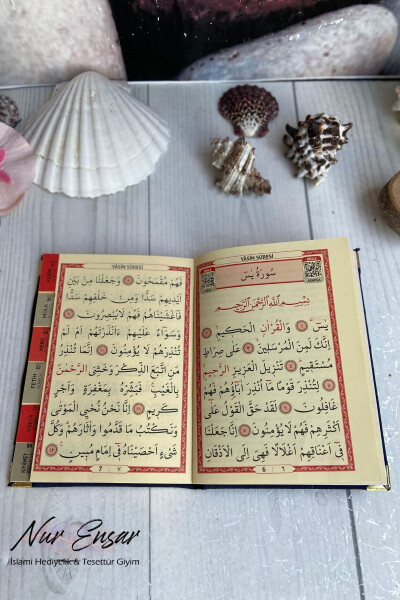 YÂSÎN SÛRESİ
سُورَةُ يٰسٓ
بِسْمِ اللّٰهِ الرَّحْمٰنِ الرَّحٖيمِ
يٰسٓ ﴿١﴾ وَالْقُرْاٰنِ الْحَكٖيمِ ﴿٢﴾
اِنَّكَ لَمِنَ الْمُرْسَلٖينَ ﴿٣﴾ عَلٰى صِرَاطٍ
مُسْتَقٖيمٍ ﴿٤﴾ تَنْزٖيلَ الْعَزٖيزِ الرَّحٖيمِ
﴿٥﴾ لِتُنْذِرَ قَوْمًا مَٓا اُنْذِرَ اٰبَٓاؤُهُمْ فَهُمْ
غَافِلُونَ ﴿٦﴾ لَقَدْ حَقَّ الْقَوْلُ عَلٰٓى
اَكْثَرِهِمْ فَهُمْ لَا يُؤْمِنُونَ ﴿٧﴾ اِنَّا جَعَلْنَا
فٖٓى اَعْنَاقِهِمْ اَغْلَالًا فَهِىَ اِلَى الْاَذْقَانِ
6 ٦
YÂSÎN SÛRESİ
فَهُمْ مُقْمَحُونَ ﴿٨﴾ وَجَعَلْنَا مِنْ بَيْنِ
اَيْدٖيهِمْ سَدًّا وَمِنْ خَلْفِهِمْ سَدًّا
فَاَغْشَيْنَاهُمْ فَهُمْ لَا يُبْصِرُونَ ﴿٩﴾
وَسَوَٓاءٌ عَلَيْهِمْ ءَاَنْذَرْتَهُمْ اَمْ لَمْ
تُنْذِرْهُمْ لَا يُؤْمِنُونَ ﴿١٠﴾ اِنَّمَا تُنْذِرُ
مَنِ اتَّبَعَ الذِّكْرَ وَخَشِىَ الرَّحْمٰنَ
بِالْغَيْبِ فَبَشِّرْهُ بِمَغْفِرَةٍ وَاَجْرٍ
كَرٖيمٍ ﴿١١﴾ اِنَّا نَحْنُ نُحْيِ الْمَوْتٰى
وَنَكْتُبُ مَا قَدَّمُوا وَاٰثَارَهُمْ وَكُلَّ
شَىْءٍ اَحْصَيْنَاهُ فٖٓى اِمَامٍ مُبٖينٍ ﴿١٢﴾
7 ٧
YÂSÎN
MÜLK
FETİH
KIYÂMET
Nur Ensar
İslami Hediyelik & Tesettür Giyim